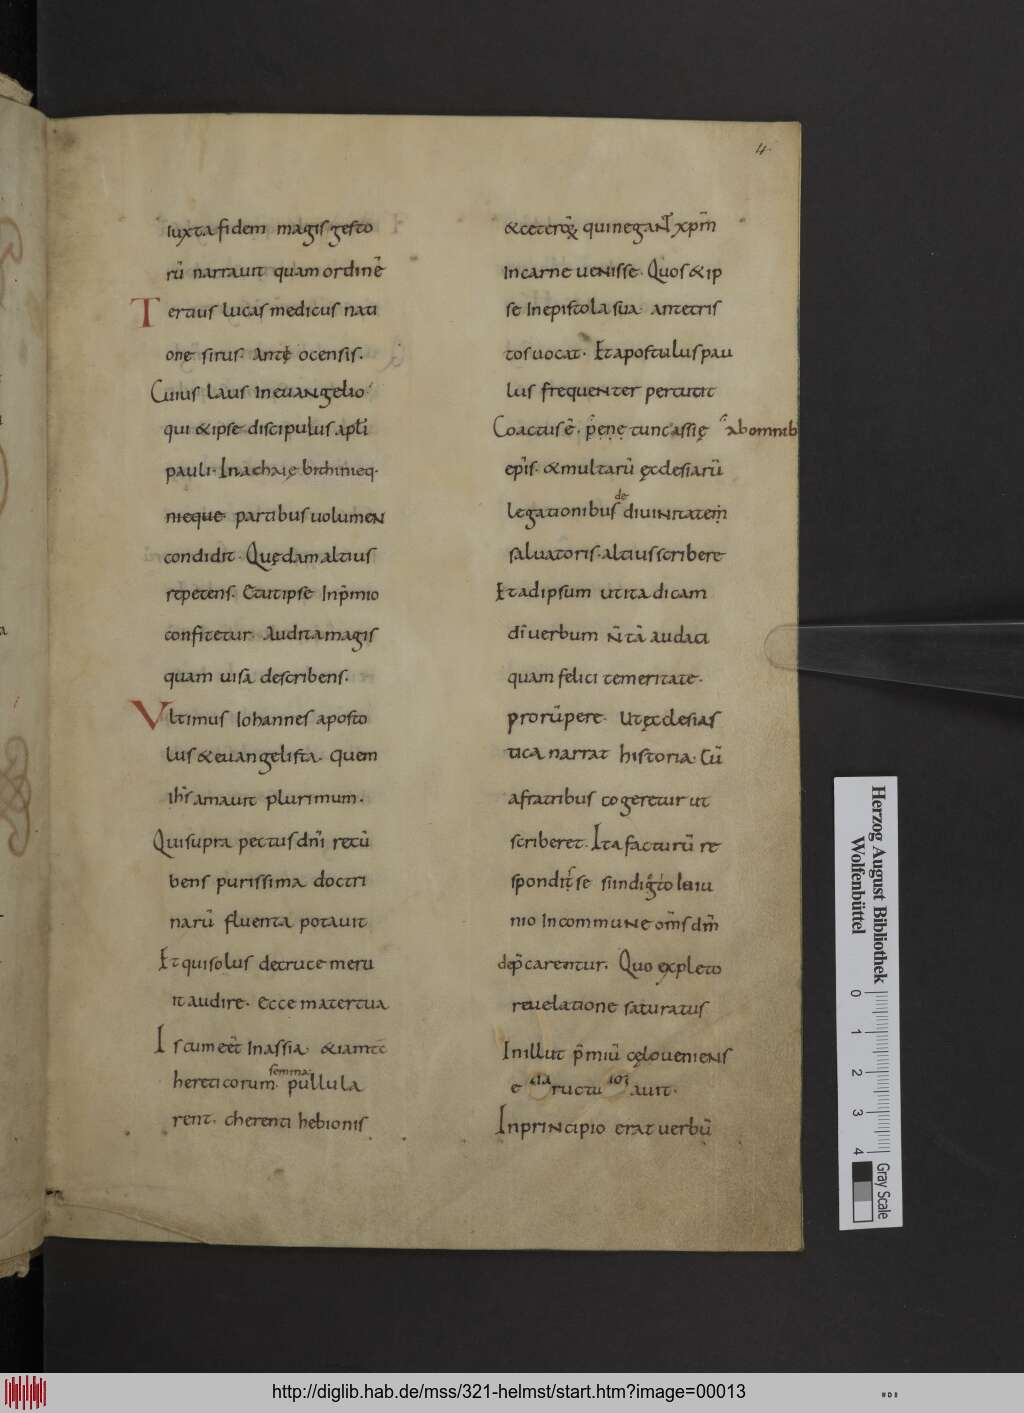 4
iuxta fidem magis gesto
rū narrauit quam ordinē
Tertius lucas medicus nati
one sirus. Antę ocensis.
Cuius laus in euangelio
qui & ipse discipulus apłi
pauli. In achaię bithinieq.
nieque partibus uolumen
condidit. Quędam altius
repetens. Et ut ipse In p̄mio
confitetur. Audita magis
quam uisā describens.
Vltimus Iohannes aposto
lus & euangelista. quem
ihs̄ amauit plurimum.
Qui supra pectus dnī recū
bens purissima doctri
narū fluenta potauit
Et qui solus de cruce meru
it audire. Ecce mater tua
Is cum eēt In assia. & iam tc̄
hereticorum semina pullula
rent. cherenti hebionis
& ceterōꝝ qui negant xpm̄
In carne uenisse. Quos & ip
se In epistola sua. antecris
tos uocat. Et apostulus pau
lus frequenter percutit
Coactus ē. p̄ene tunc assię ab omnib
epīs. & multarū ęcclesiarū
legationibus de diuinitatem
saluatoris. altius scribere
Et ad ipsum ut ita dicam
dī uerbum n̄ tā audaci
quam felici temeritate.
prorūpere. Ut ęcclesias
tica narrat historia. Cū
a fratribus cogeretur ut
scriberet. Ita facturū re
spondit se si indicto leiu
nio In commune om̄s dm̄
dep̄carentur. Quo expleto
reuelatione saturatus
In illut p̄miū cęlo ueniens
eructuauit.
In principio erat uerbū
Herzog August Bibliothek
Wolfenbüttel
0 1 2 3 4
Gray Scale
http://diglib.hab.de/mss/321-helmst/start.htm?image=00013